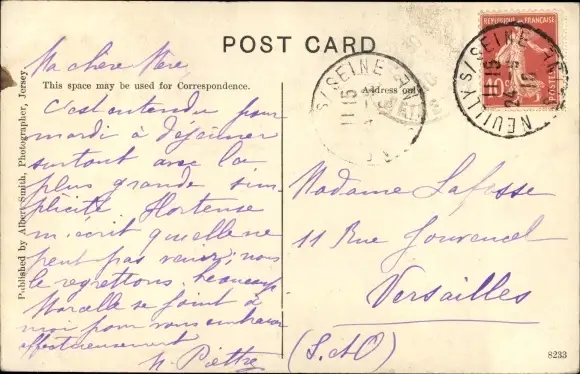 POST CARD
This space may be used for Correspondence.
Address only
Published by Albert Smith, Photographer, Jersey.
Ma chère Mère,
C'est entendu pour
mardi à déjeuner
surtout avec la
plus grande sim
plicité Hortense
m'écrit qu'elle ne
peut pas venir, nous
le regrettons beaucoup
Marcelle se joint à
moi pour vous embrasser
affectueusement
Madame Lafosse
11 Rue Jouvencel
Versailles
(S. & O)
REPUBLIQUE FRANÇAISE
10
POSTES
NEUILLY S/ SEINE
11 15
S/ SEINE
11 15
8233